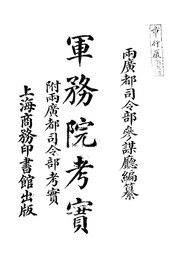 兩廣都司令部參謀廳編纂
軍務院考實
附兩廣都司令部考實
上海商務印書館出版